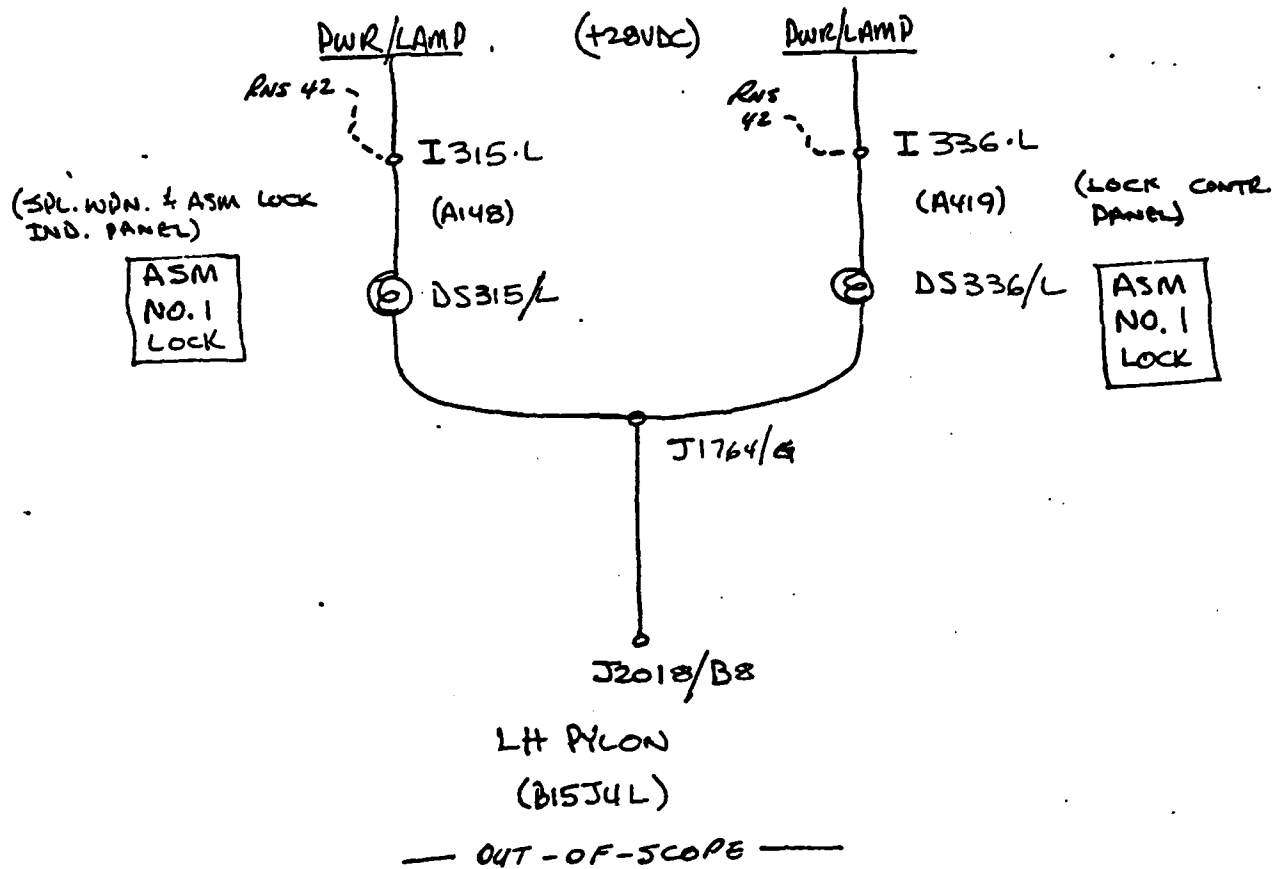 PWR/LAMP
(+28VDC)
PWR/LAMP
RNS 42
RNS
42
I315.L
I336.L
(SPL. WPN. & ASM LOCK
IND. PANEL)
(A148)
(A419)
(LOCK CONTR.
PANEL)
ASM
NO. 1
LOCK
DS315/L
DS336/L
ASM
NO. 1
LOCK
J1764/G
J2018/B8
LH PYLON
(B15J4L)
— OUT-OF-SCOPE —